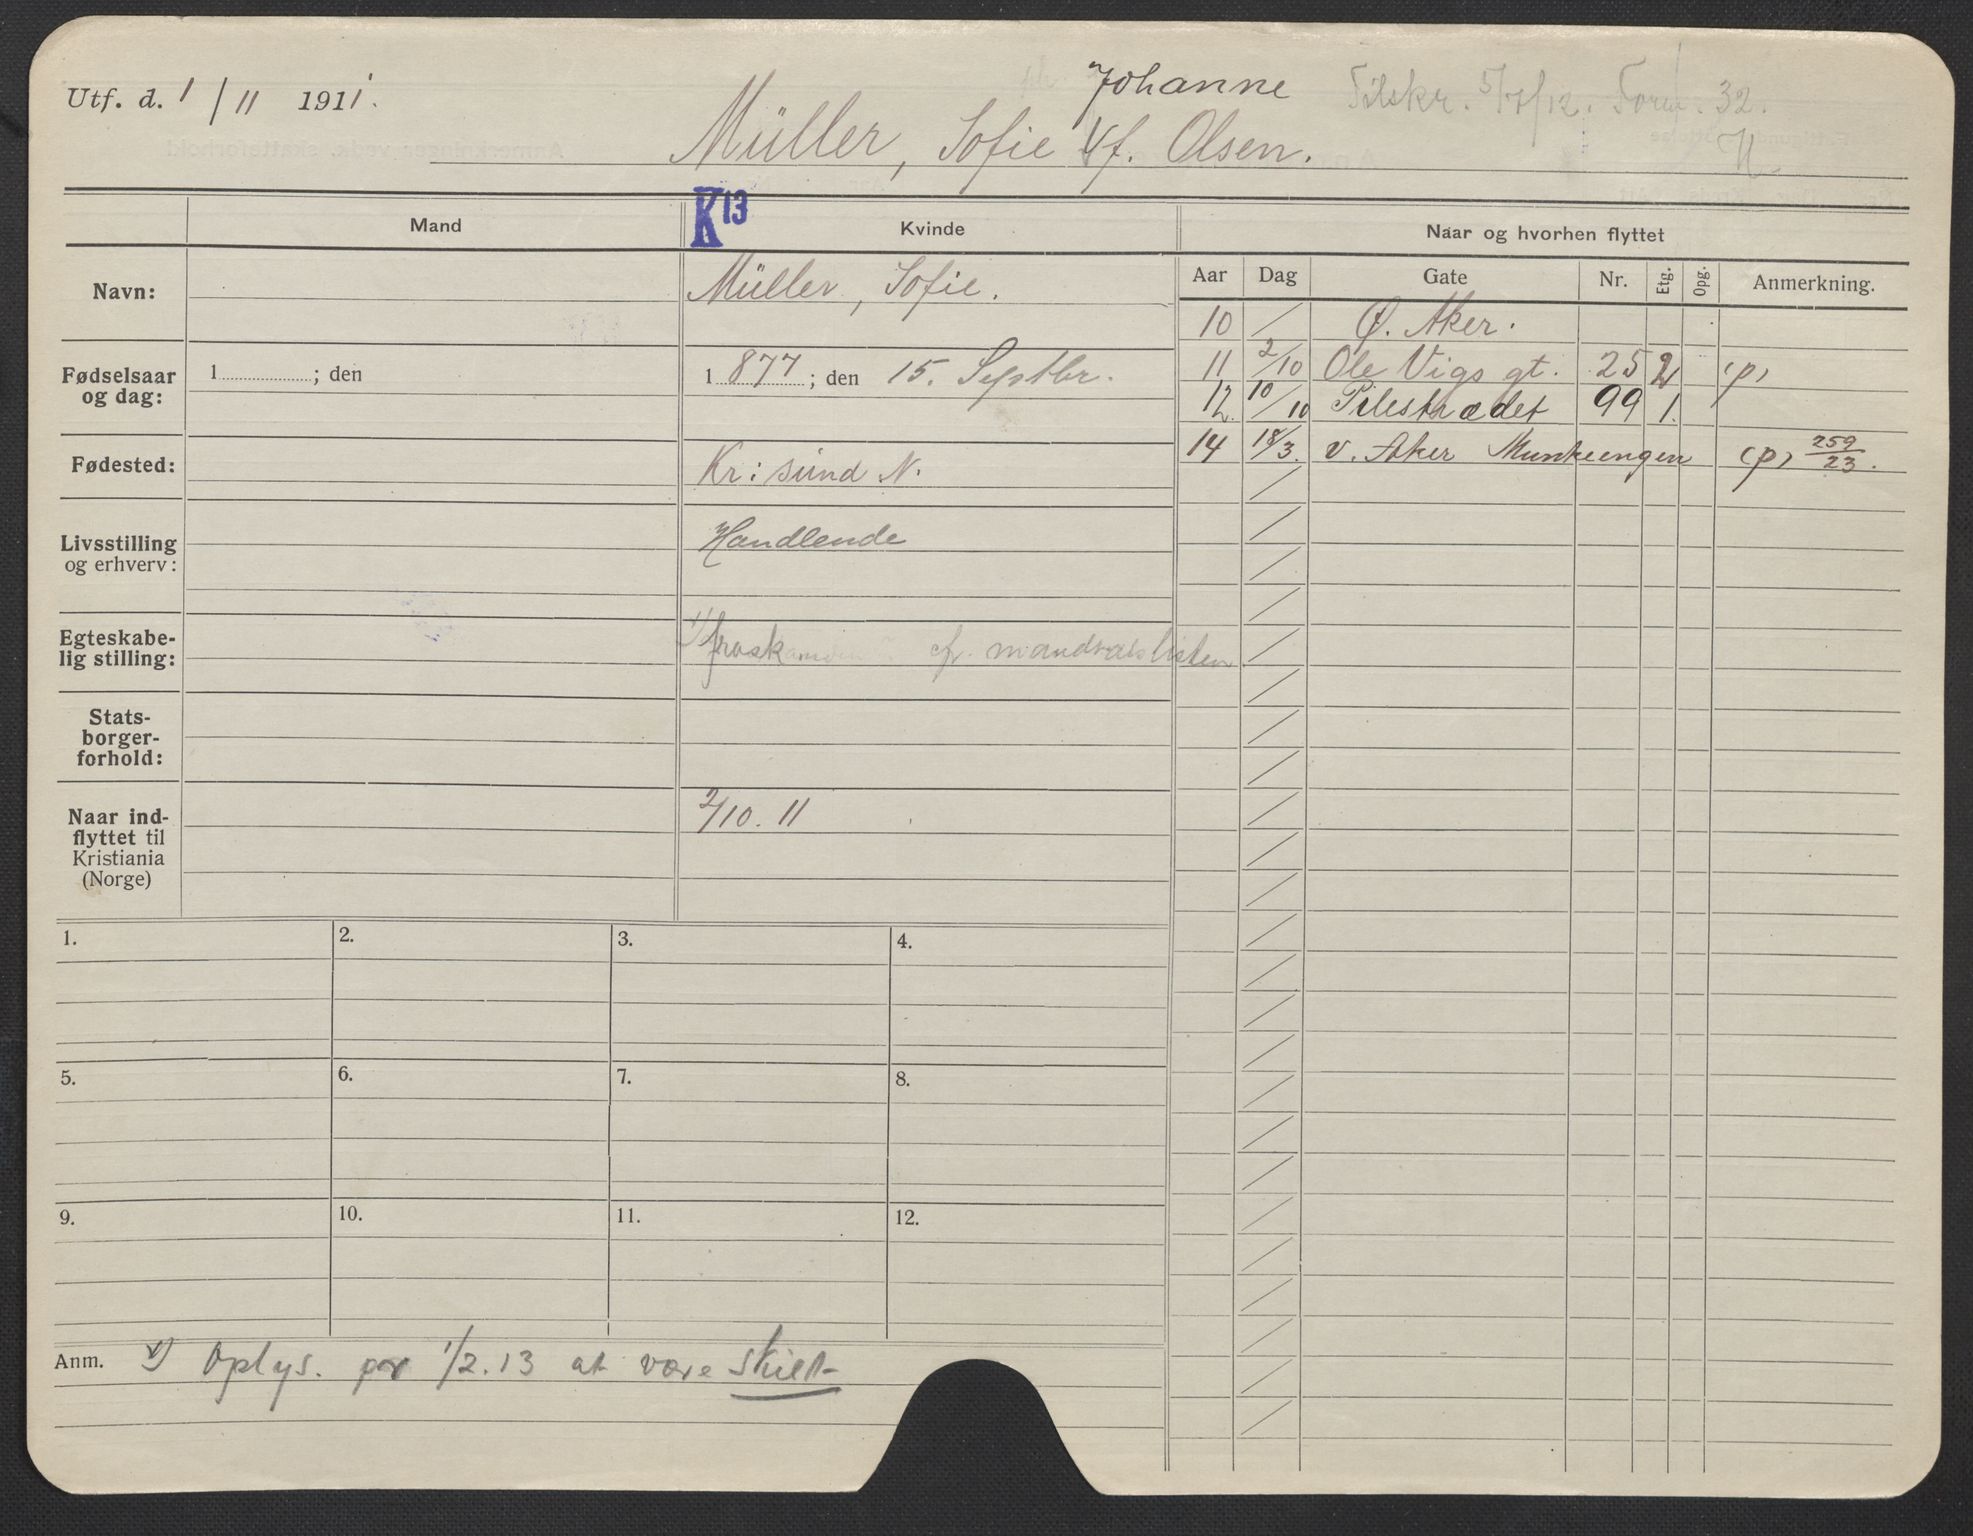 Utf. d. 1/11 1911.
Johanne
Tilskr. 5/7/12. Form. 32.
Müller, Sofie f. Olsen.
K13
Mand
Kvinde
Naar og hvorhen flyttet
Aar Dag Gate Nr. Etg. Opg. Anmerkning.
Navn:
Müller, Sofie.
10 / Ø. Aker.
11 2/10 Ole Vigs gt. 25 2 (p)
12. 10/10 Pilestrædet 99 1.
14 18/3. V. Aker Munkeengen (p) 259/23.
Fødselsaar
og dag:
1 ; den
1 877 ; den 15. Septbr.
Fødested:
Kr:sund N.
Livsstilling
og erhverv:
Handlende
Egteskabe-
lig stilling:
1) frask cfr. mandtalslisten
Stats-
borger-
forhold:
Naar ind-
flyttet til
Kristiania
(Norge)
2/10. 11
1. 2. 3. 4.
5. 6. 7. 8.
9. 10. 11. 12.
Anm. 1) Oplys. pr 1/2.13 at være skilt